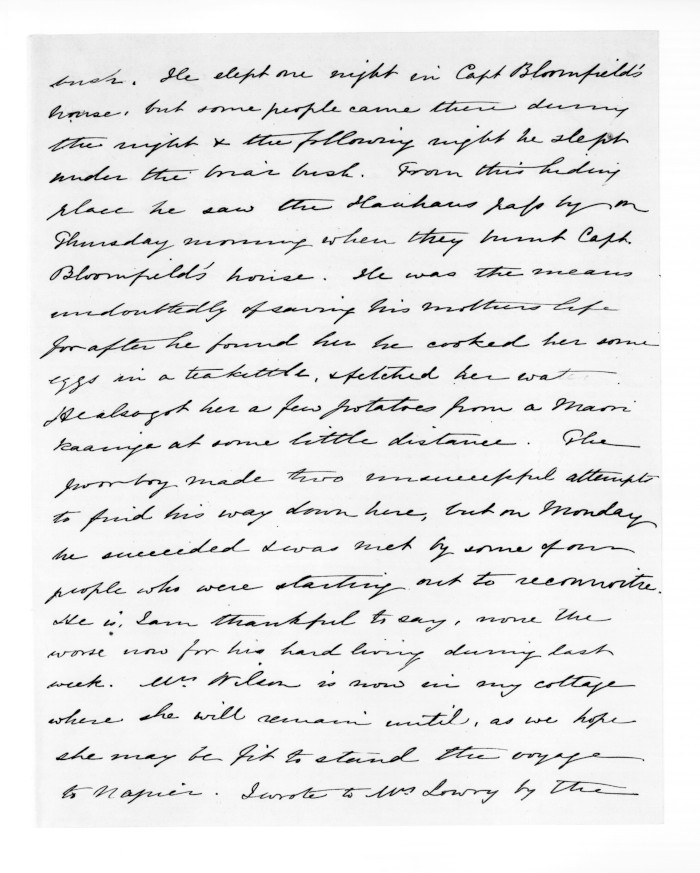 bush. He slept one night in Capt Bloomfield's
house, but some people came there during
the night & the following night he slept
under the briar bush. From this hiding
place he saw the Hauhaus pass by on
Thursday morning when they burnt Capt.
Bloomfield's house. He was the means
undoubtedly of saving his mothers life
for after he found her he cooked her some
eggs in a teakettle, & fetched her wat
He also got her a few potatoes from a Maori
kaainga at some little distance. The
poor boy made two unsuccessful attempts
to find his way down here, but on Monday
he succeeded & was met by some of our
people who were starting out to reconnoitre.
He is, I am thankful to say, none the
worse now for his hard living during last
week. Mrs Wilson is now in my cottage
where she will remain until, as we hope
she may be fit to stand the voyage
to Napier. I wrote to Mrs Lowry by the